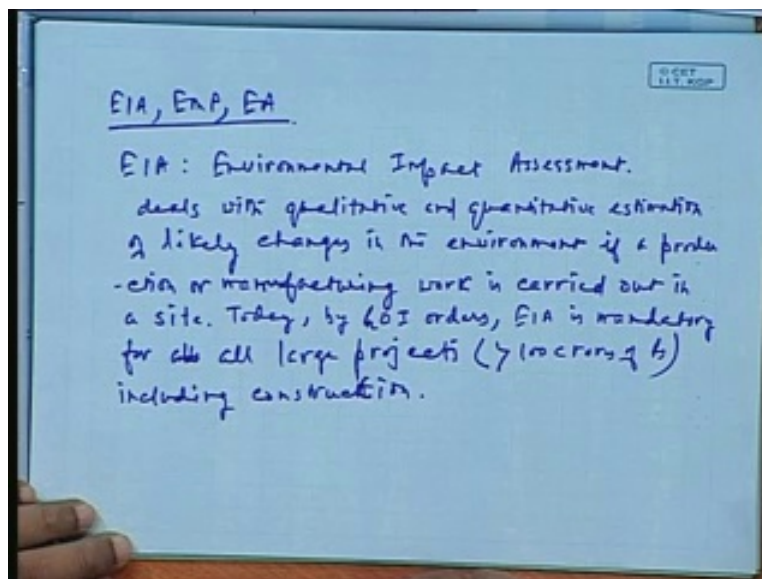 © CET
I.I.T. KGP
EIA, EMP, EA
EIA : Environmental Impact Assessment.
deals with qualitative and quantitative estimation
of likely changes in the environment if a produ
-ction or manufacturing work is carried out in
a site. Today, by GOI orders, EIA is mandatory
for all large projects (> 100 crores of
including construction.